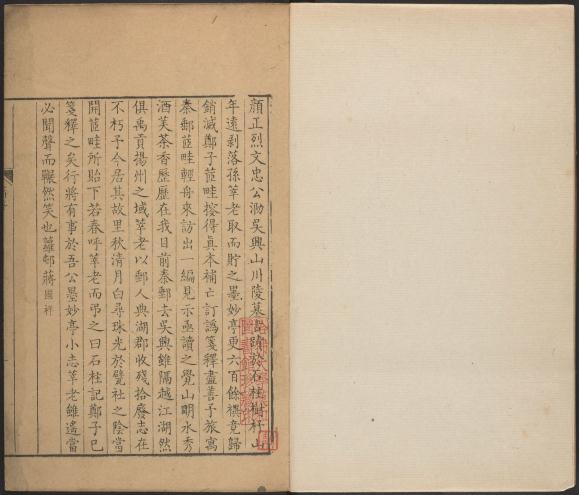 顏正烈文忠公泐吳興山川陵墓古蹟於石柱樹杼山
年遠剥落孫莘老取而貯之墨妙亭更六百餘禩竟歸
銷滅鄭子芷畦搜得真本補亡訂譌箋釋盡善予旅寓
秦郵芷畦輕舟來訪出一編見示亟讀之覺山明水秀
酒芙茶香歷歷在我目前秦郵去吳興雖隔越江湖然
俱禹貢揚州之域莘老以郵人典湖郡收殘拾廢志在
不朽予今居其故里秋清月白尋珠光於甓社之陰當
開芷畦所貽下若春呼莘老而弔之曰石柱記鄭子已
箋釋之矣行將有事於吾公墨妙亭小志莘老雖遙當
必聞聲而囅然笑也蘿邨蔣國祥